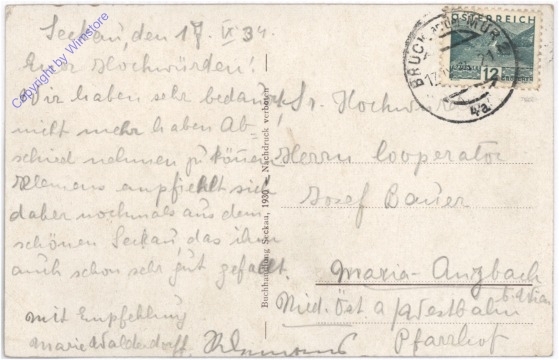 Seckau, den 17. IX 34.
Euer Hochwürden!
Wir haben sehr bedauert
nicht mehr haben Ab
schied nehmen zu können
Klemens empfiehlt sich
daher nochmals aus dem
schönen Seckau, das ihm
auch schon sehr gut gefällt.
mit Empfehlung
Marie Walderdorff.
Klemens
Copyright by Winistore
Buchhandlung Seckau, 1930 — Nachdruck verboten
ÖSTERREICH
12
BRUCK A.D. MUR
4a
Sr. Hochw
Herrn Cooperator
Josef Bauer
Maria-Anzbach
Nied. Öst a/d Westbahn
Pfarrhof